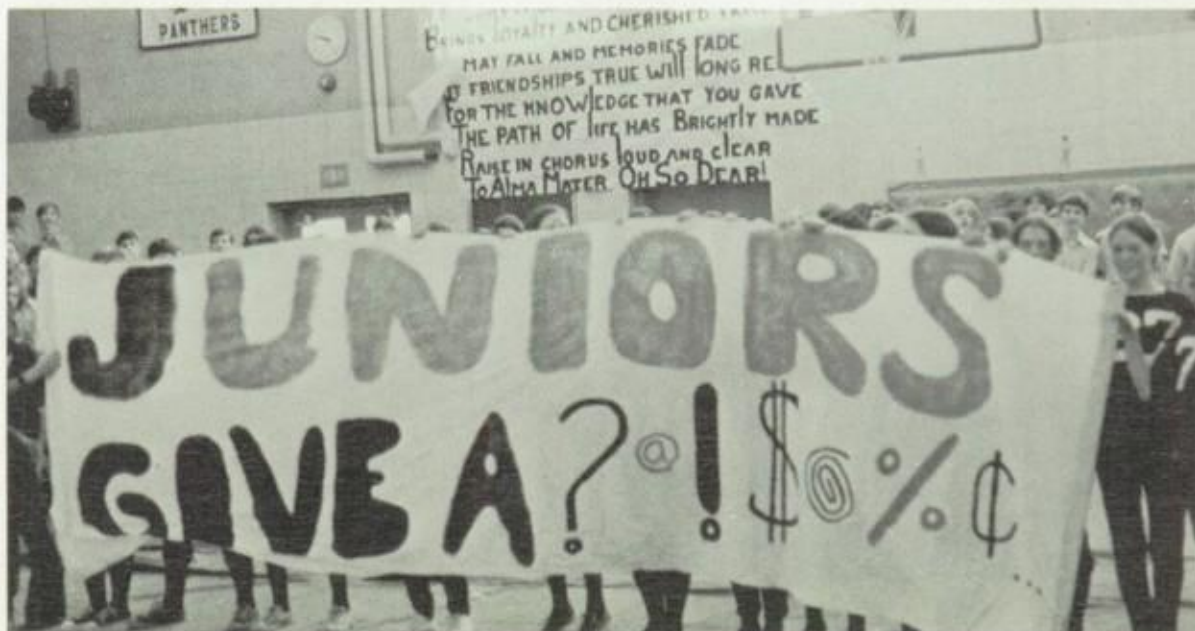 PANTHERS
BRINGS LOYALTY AND CHERISHED
MAY FALL AND MEMORIES FADE
FRIENDSHIPS TRUE WILL LONG RE
FOR THE KNOWLEDGE THAT YOU GAVE
THE PATH OF LIFE HAS BRIGHTLY MADE
RAISE IN CHORUS LOUD AND CLEAR
TO ALMA MATER OH SO DEAR!
JUNIORS
GIVE A ? @ ! $ @ % ¢
....
27